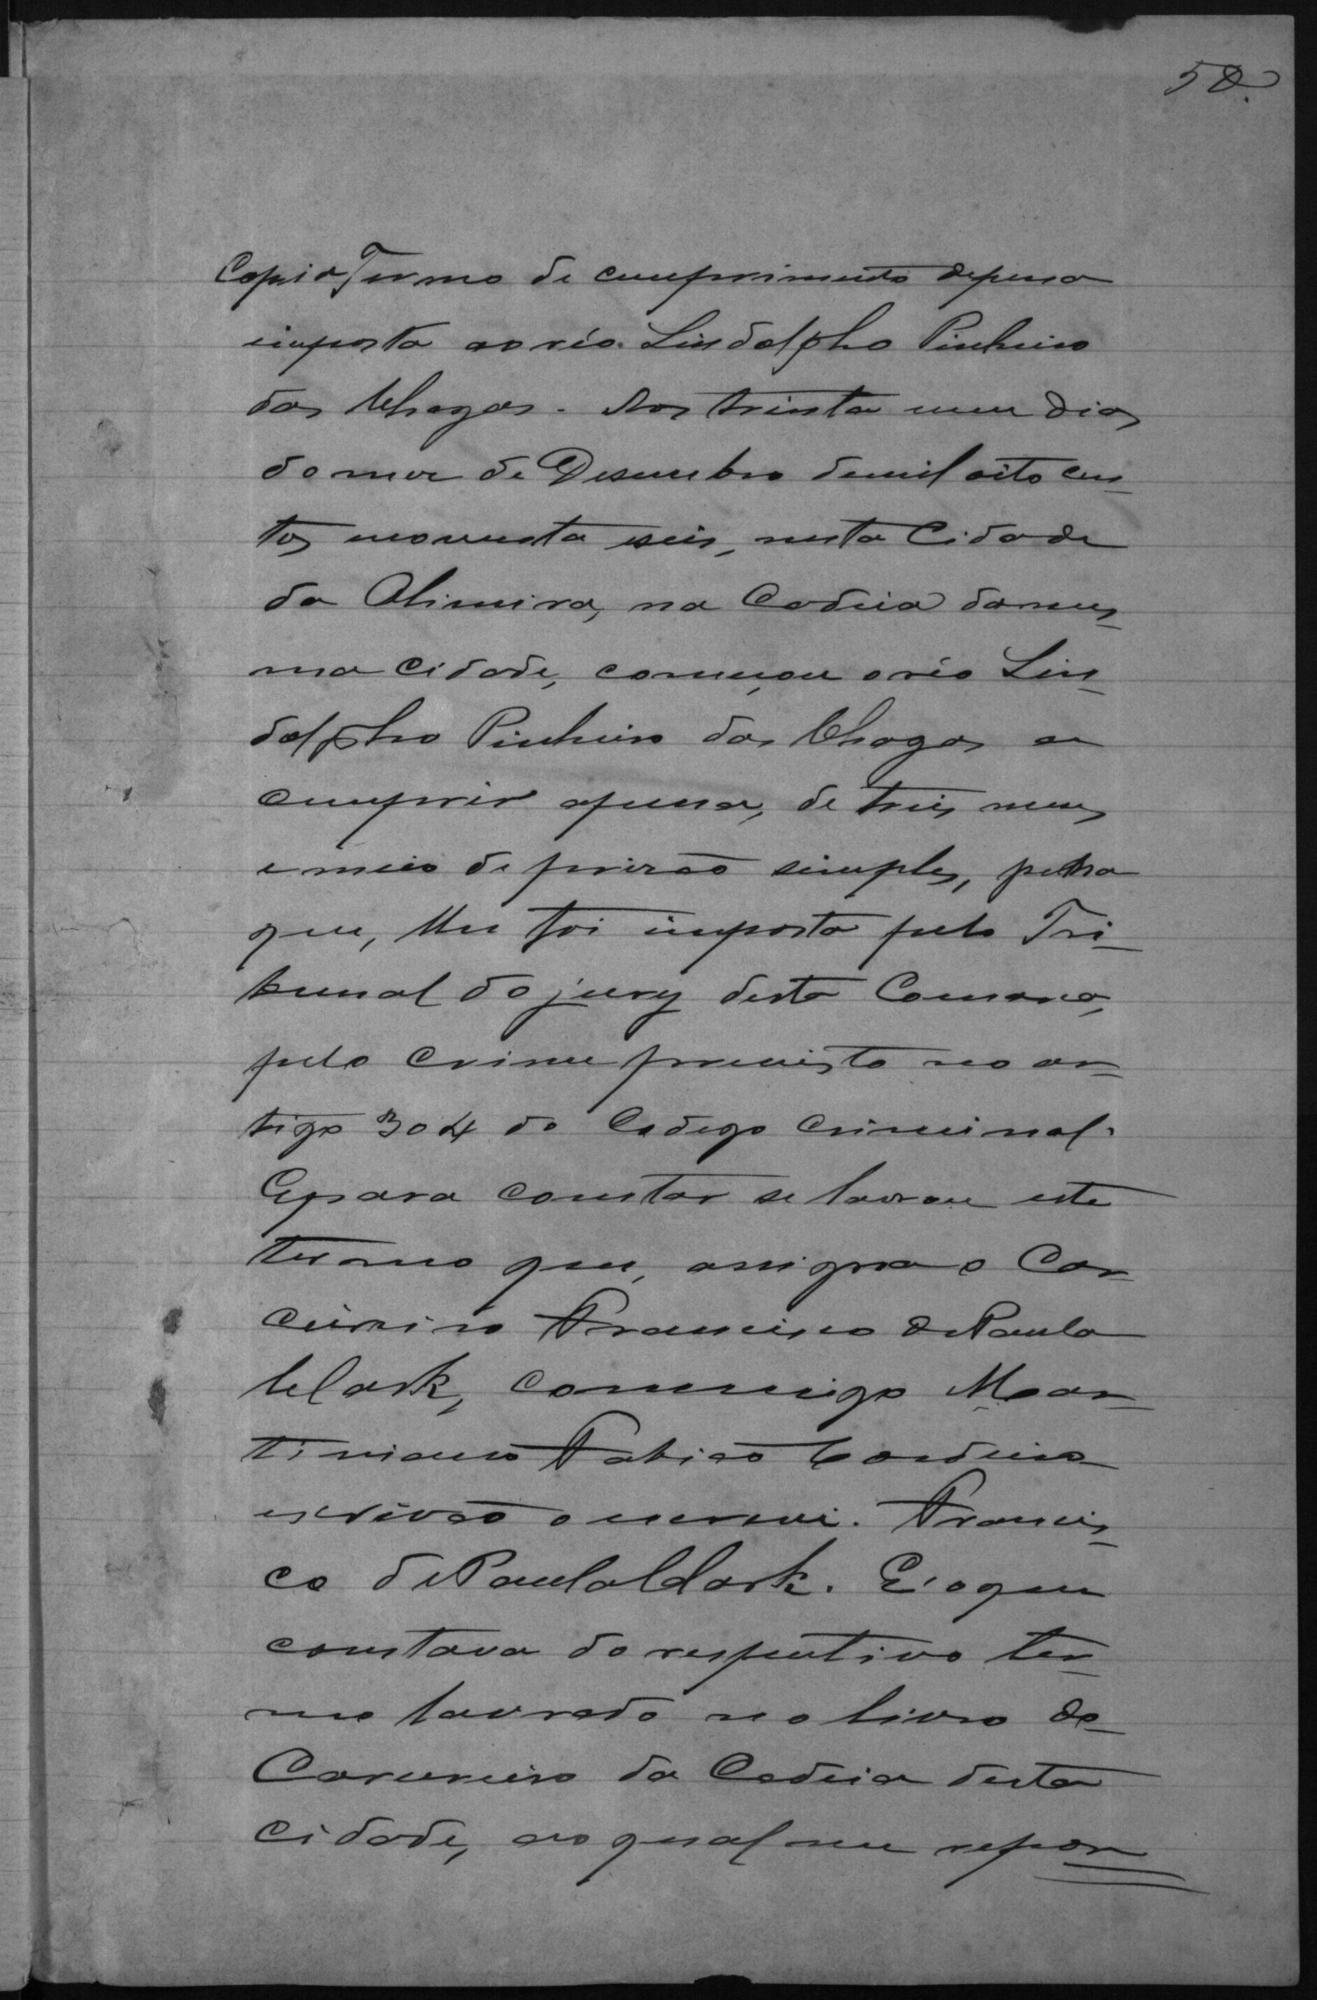 50.
Copia Termo de cumprimento de pena
imposta ao réo Lindolpho Pinheiro
das Chagas. Aos trinta um dias
do mez de Desembro de mil oito cen-
tos noventa seis, nesta Cidade
da Olimeira, na Cadeia da mes-
ma Cidade, começou o réo Lin-
dolpho Pinheiro das Chagas a
cumprir a pena, de tres mezes
e meio de prizão simples, pena
que, lhe foi imposta pelo Tri-
bunal do jury desta Comarca,
pelo crime previsto no ar-
tigo 304 do Codego Criminal.
E para constar se lavrou este
termo que, assigna o Car-
cereiro Francisco de Paula
Clark, commigo Mar-
tiniano Fabião Cordeiro
escrivão o escrevi. Francis-
co de Paula Clark. E' o que
constava do respectivo ter-
mo lavrado no livro do
Carcereiro da Cadeia desta
cidade, ao qual me repor